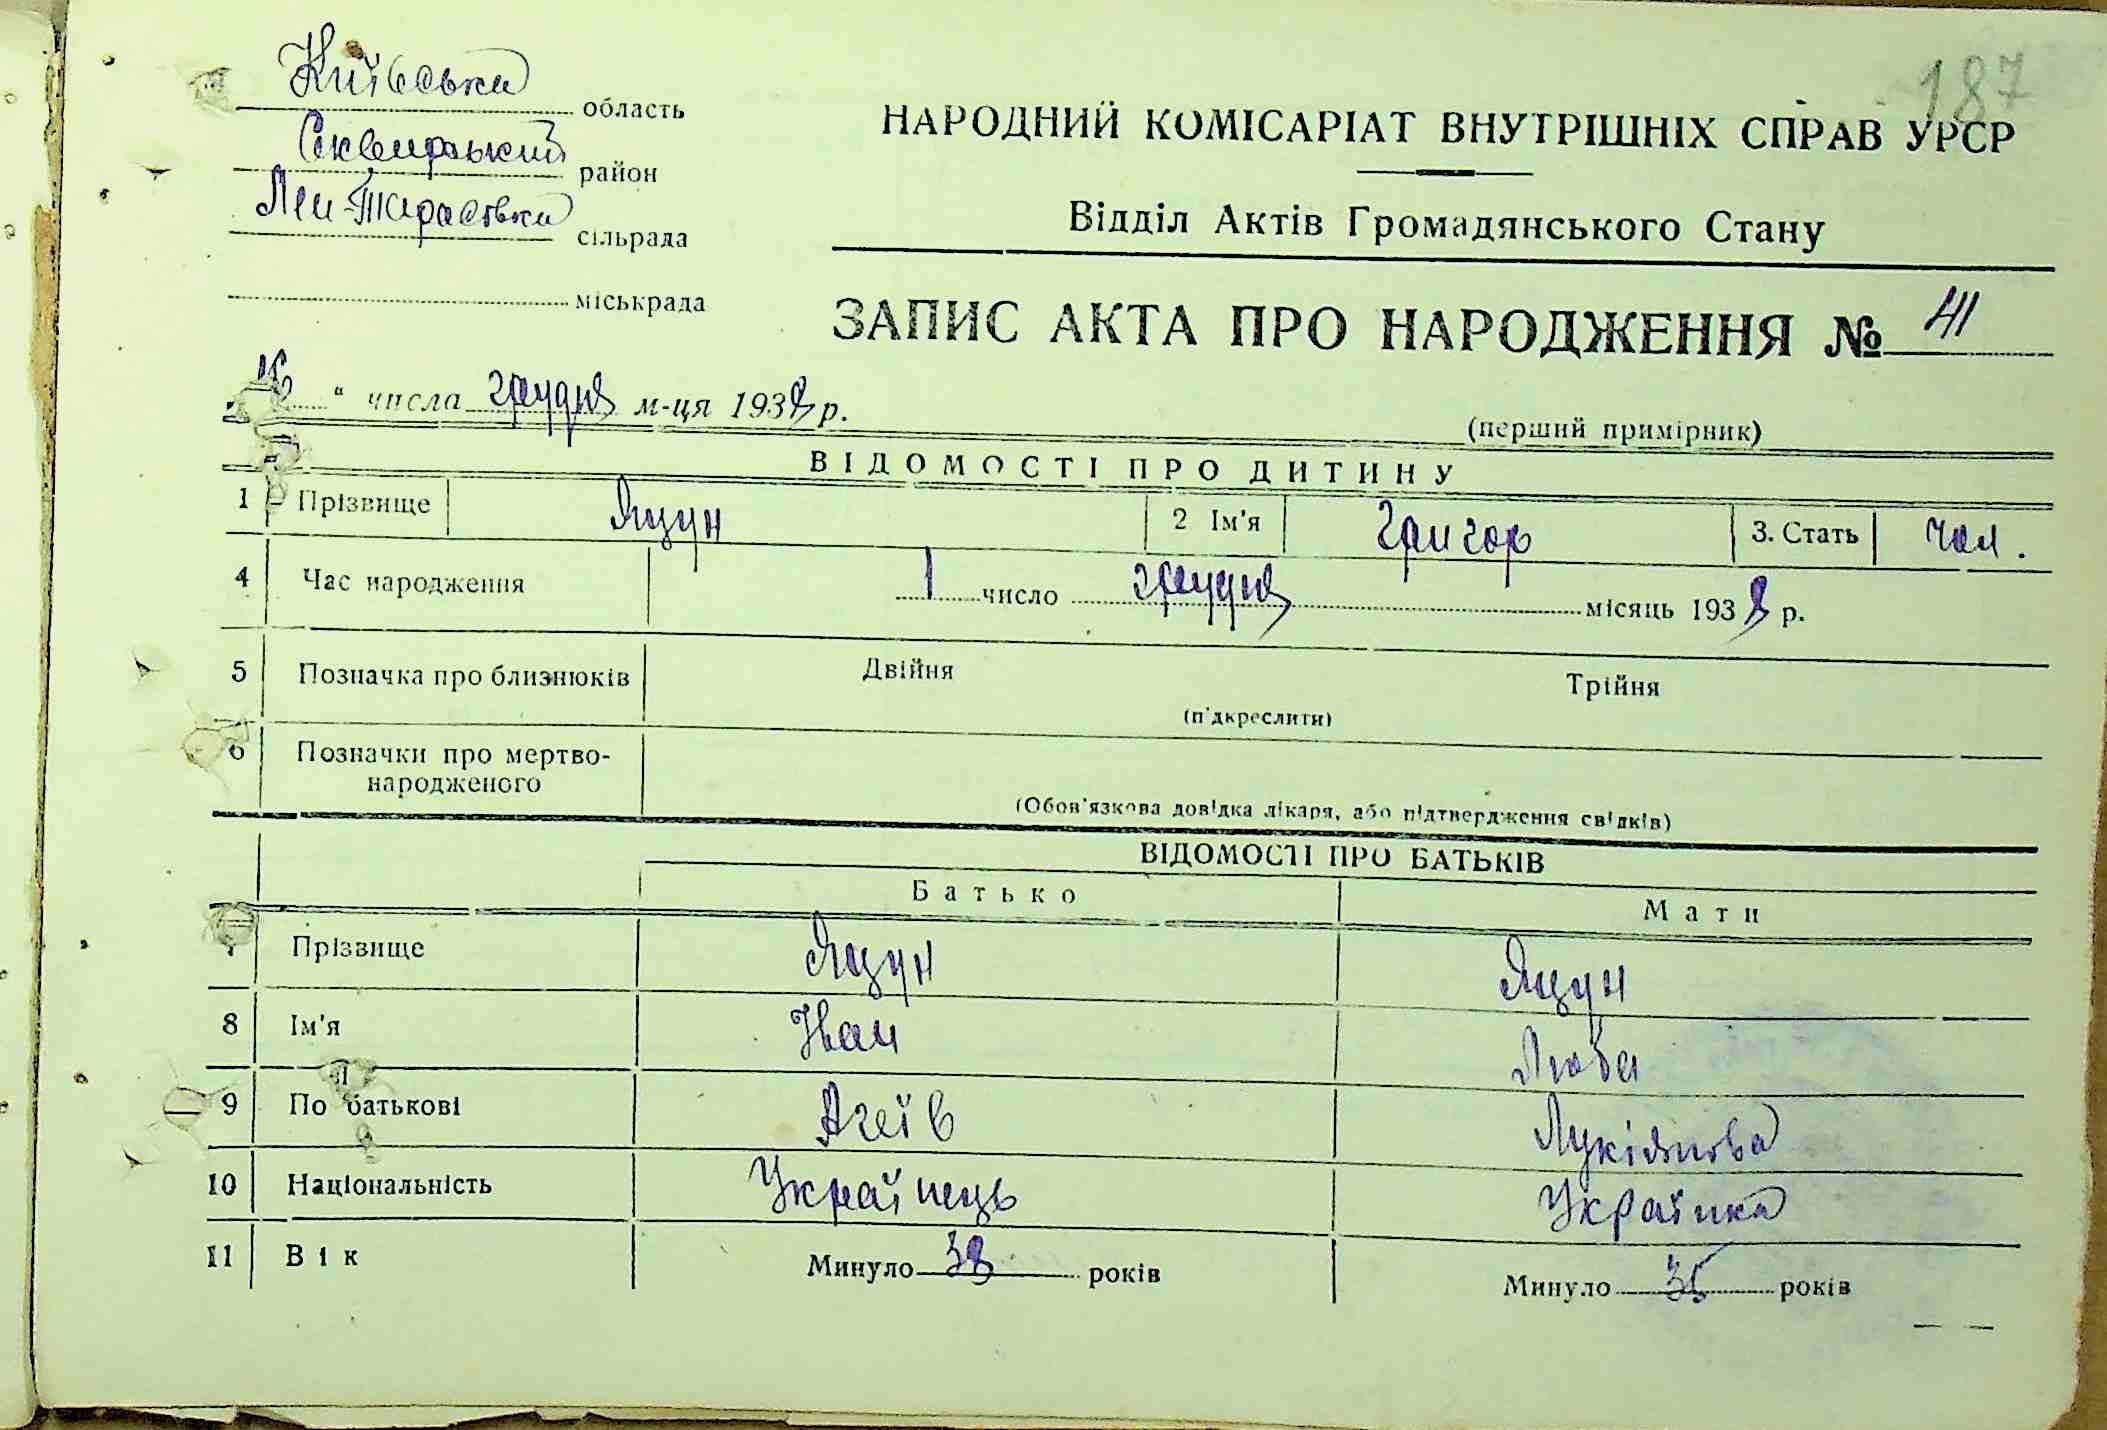 187
Київська область
Сквирський район
Лен-Тарасівка сільрада
міськрада
НАРОДНИЙ КОМІСАРІАТ ВНУТРІШНІХ СПРАВ УРСР
Відділ Актів Громадянського Стану
ЗАПИС АКТА ПРО НАРОДЖЕННЯ № 41
" числа грудня м-ця 1938 р.
(перший примірник)
ВІДОМОСТІ ПРО ДИТИНУ
1 Прізвище Яцун 2 Ім'я Григор 3. Стать чол.
4 Час народження 1 число грудня місяць 1938 р.
5 Позначка про близнюків Двійня Трійня
(підкреслити)
6 Позначки про мертво-
народженого
(Обов'язкова довідка лікаря, або підтвердження свідків)
ВІДОМОСТІ ПРО БАТЬКІВ
Батько Мати
7 Прізвище Яцун Яцун
8 Ім'я Іван Люба
9 По батькові Агеїв Лукіянова
10 Національність Українець Українка
11 Вік Минуло 38 років Минуло 35 років